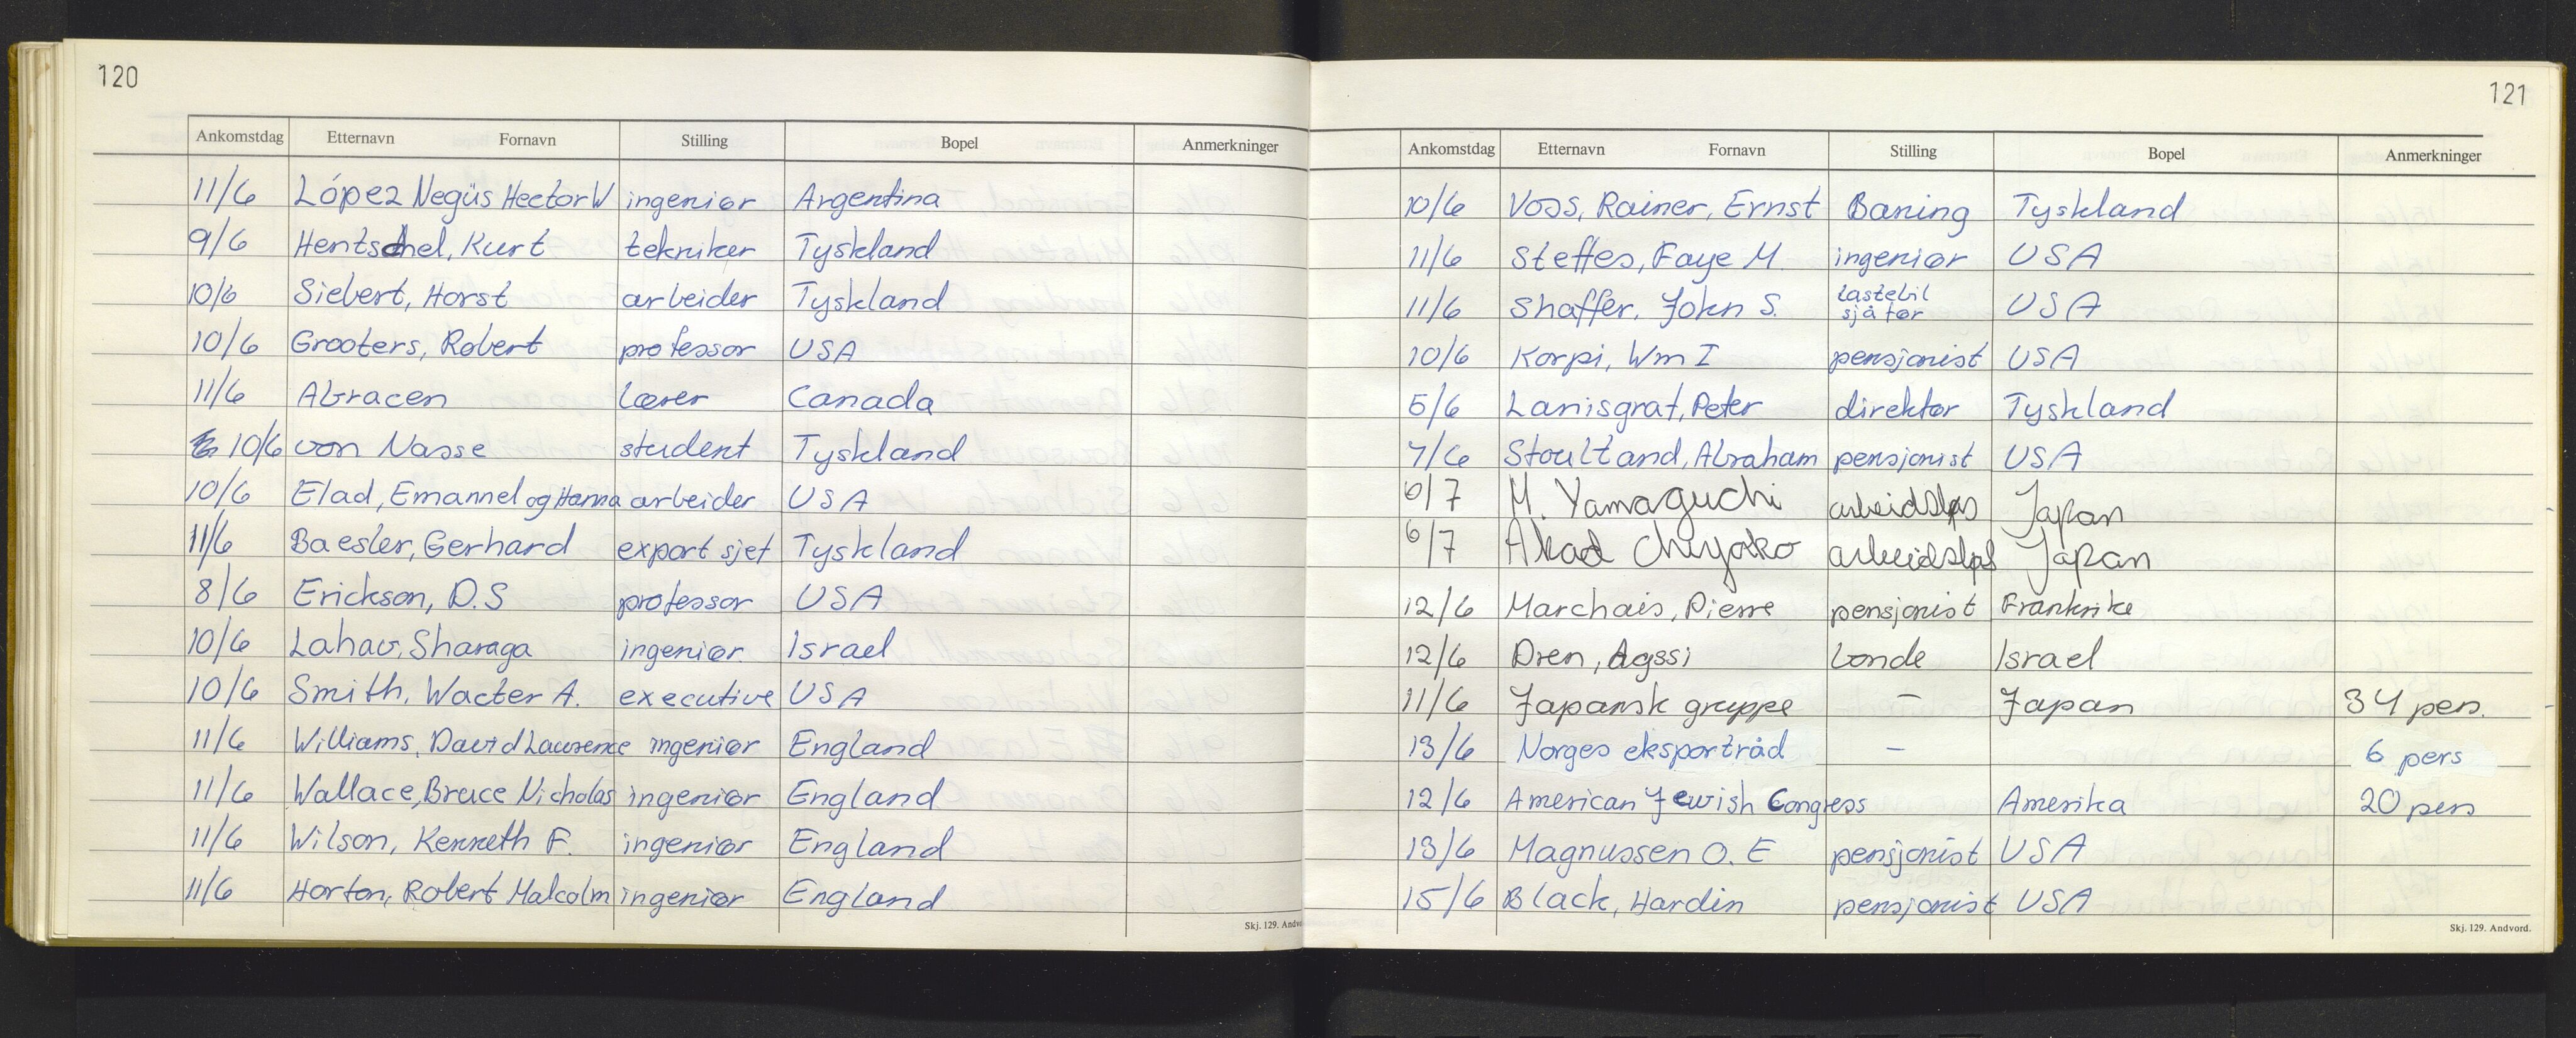 120
Ankomstdag Etternavn Fornavn Stilling Bopel Anmerkninger
11/6 López Negüs Hector W ingeniør Argentina
9/6 Hentschel, Kurt tekniker Tyskland
10/6 Siebert, Horst arbeider Tyskland
10/6 Grooters, Robert professor USA
11/6 Abracen lærer Canada
10/6 von Nasse student Tyskland
10/6 Elad, Emannel og Hanna arbeider USA
11/6 Baesler, Gerhard export sjef Tyskland
8/6 Erickson, D.S professor USA
10/6 Lahav, Sharaga ingeniør Israel
10/6 Smith, Wacter A. executive USA
11/6 Williams, David Lawrence ingeniør England
11/6 Wallace, Bruce Nicholas ingeniør England
11/6 Wilson, Kenneth F. ingeniør England
11/6 Horton, Robert Malcolm ingeniør England
Skj. 129. Andvo
121
Ankomstdag Etternavn Fornavn Stilling Bopel Anmerkninger
10/6 Voss, Rainer, Ernst Baning Tyskland
11/6 Steffes, Faye M. ingeniør USA
11/6 Shaffer, John S. lastebil sjåfør USA
10/6 Korpi, Wm I pensjonist USA
5/6 Lanisgraf, Peter direktør Tyskland
7/6 Stoultand, Abraham pensjonist USA
6/7 M. Yamaguchi arbeidsløs Japan
6/7 Akad Chiyoko arbeidsløs Japan
12/6 Marchais, Pierre pensjonist Frankrike
12/6 Oren, Agssi bonde Israel
11/6 Japansk gruppe – Japan 34 pers.
13/6 Norges eksportråd – 6 pers
12/6 American Jewish Congress Amerika 20 pers
13/6 Magnussen O. E pensjonist USA
15/6 Black, Hardin pensjonist USA
Skj. 129. Andvord.